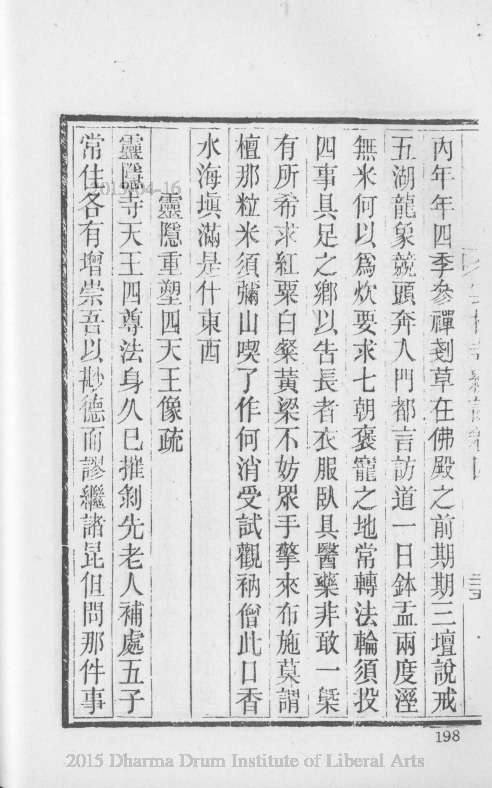 內年年四季參禪剗草在佛殿之前期期三壇說戒
五湖龍象競頭奔入門都言訪道一日鉢盂兩度溼
無米何以為炊要求七朝褒寵之地常轉法輪須投
四事具足之鄉以告長者衣服臥具醫藥非敢一槩
有所希求紅粟白粲黃粱不妨眾手擎來布施莫謂
檀那粒米須彌山喫了作何消受試觀衲僧此口香
水海塡滿是什東西
靈隱重塑四天王像疏
靈隱寺天王四尊法身久已摧剝先老人補處五子
常住各有增崇吾以尠德而謬繼諸昆但問那件事
198
2015-04-16
2015 Dharma Drum Institute of Liberal Arts